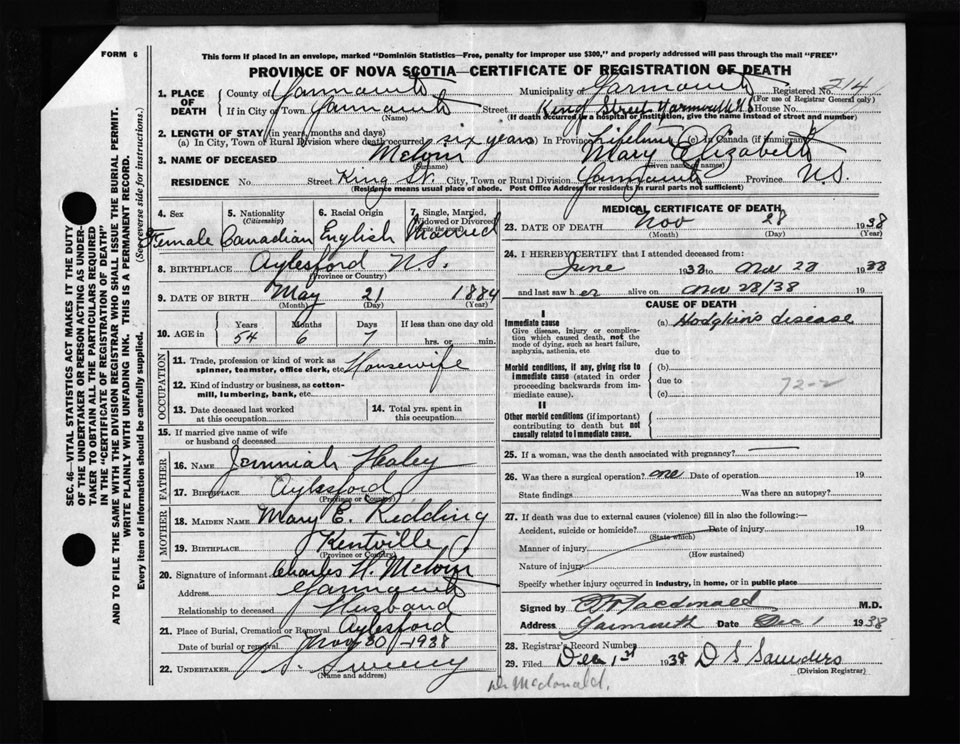 FORM 6
This form if placed in an envelope, marked "Dominion Statistics—Free, penalty for improper use $300," and properly addressed will pass through the mail "FREE"
PROVINCE OF NOVA SCOTIA—CERTIFICATE OF REGISTRATION OF DEATH
SEC. 46—VITAL STATISTICS ACT MAKES IT THE DUTY
OF THE UNDERTAKER OR PERSON ACTING AS UNDER-
TAKER TO OBTAIN ALL THE PARTICULARS REQUIRED
IN THE "CERTIFICATE OF REGISTRATION OF DEATH"
AND TO FILE THE SAME WITH THE DIVISION REGISTRAR WHO SHALL ISSUE THE BURIAL PERMIT.
WRITE PLAINLY WITH UNFADING INK. THIS IS A PERMANENT RECORD.
Every item of information should be carefully supplied. (See reverse side for instructions.)
1. PLACE OF DEATH County of Yarmouth Municipality of Yarmouth Registered No. 214
(For use of Registrar General only)
If in City or Town Yarmouth Street King Street Yarmouth N.S. House No.
(Name) (If death occurred in a hospital or institution, give the name instead of street and number)
2. LENGTH OF STAY (in years, months and days)
(a) In City, Town or Rural Division where death occurred six years (b) In Province Lifetime (c) In Canada (if immigrant)
3. NAME OF DECEASED Melvin Mary Elizabeth
(Surname) (Given name or names)
RESIDENCE No. Street King St. City, Town or Rural Division Yarmouth Province N.S.
(Residence means usual place of abode. Post Office Address for residents in rural parts not sufficient)
4. Sex 5. Nationality (Citizenship) 6. Racial Origin 7. Single, Married, Widowed or Divorced (Write the word)
Female Canadian English Married
8. BIRTHPLACE Aylesford N.S.
(Province or Country)
9. DATE OF BIRTH May 21 1884
(Month) (Day) (Year)
10. AGE in Years Months Days If less than one day old
54 6 7 hrs. or min.
OCCUPATION
11. Trade, profession or kind of work as spinner, teamster, office clerk, etc. Housewife
12. Kind of industry or business, as cotton-mill, lumbering, bank, etc.
13. Date deceased last worked at this occupation
14. Total yrs. spent in this occupation
15. If married give name of wife or husband of deceased
FATHER
16. NAME Jeremiah Healey
17. BIRTHPLACE Aylesford
(Province or Country)
MOTHER
18. MAIDEN NAME Mary E. Redding
19. BIRTHPLACE Kentville
(Province or Country)
20. Signature of informant Charles H. Melvin
Address Yarmouth
Relationship to deceased Husband
21. Place of Burial, Cremation or Removal Aylesford
Date of burial or removal Nov 30/1938
22. UNDERTAKER Sweeny
(Name and address)
MEDICAL CERTIFICATE OF DEATH
23. DATE OF DEATH Nov 28 1938
(Month) (Day) (Year)
24. I HEREBY CERTIFY that I attended deceased from:
June 1933 to Nov 28 1938
and last saw her alive on Nov 28/38 19
CAUSE OF DEATH
I
Immediate cause (a) Hodgkin's disease
Give disease, injury or complication which caused death, not the mode of dying, such as heart failure, asphyxia, asthenia, etc
due to
Morbid conditions, if any, giving rise to immediate cause (stated in order proceeding backwards from immediate cause). (b)
due to
72-2
(c)
II
Other morbid conditions (if important) contributing to death but not causally related to immediate cause.
25. If a woman, was the death associated with pregnancy?
26. Was there a surgical operation? Date of operation 19
State findings Was there an autopsy?
27. If death was due to external causes (violence) fill in also the following:—
Accident, suicide or homicide? Date of injury 19
(State which)
Manner of injury
(How sustained)
Nature of injury
Specify whether injury occurred in industry, in home, or in public place
Signed by Macdonald M.D.
Address Yarmouth Date Dec 1 1938
28. Registrar's Record Number
29. Filed Dec 1st 1938 D S Saunders
(Division Registrar)
Dr Mcdonald.